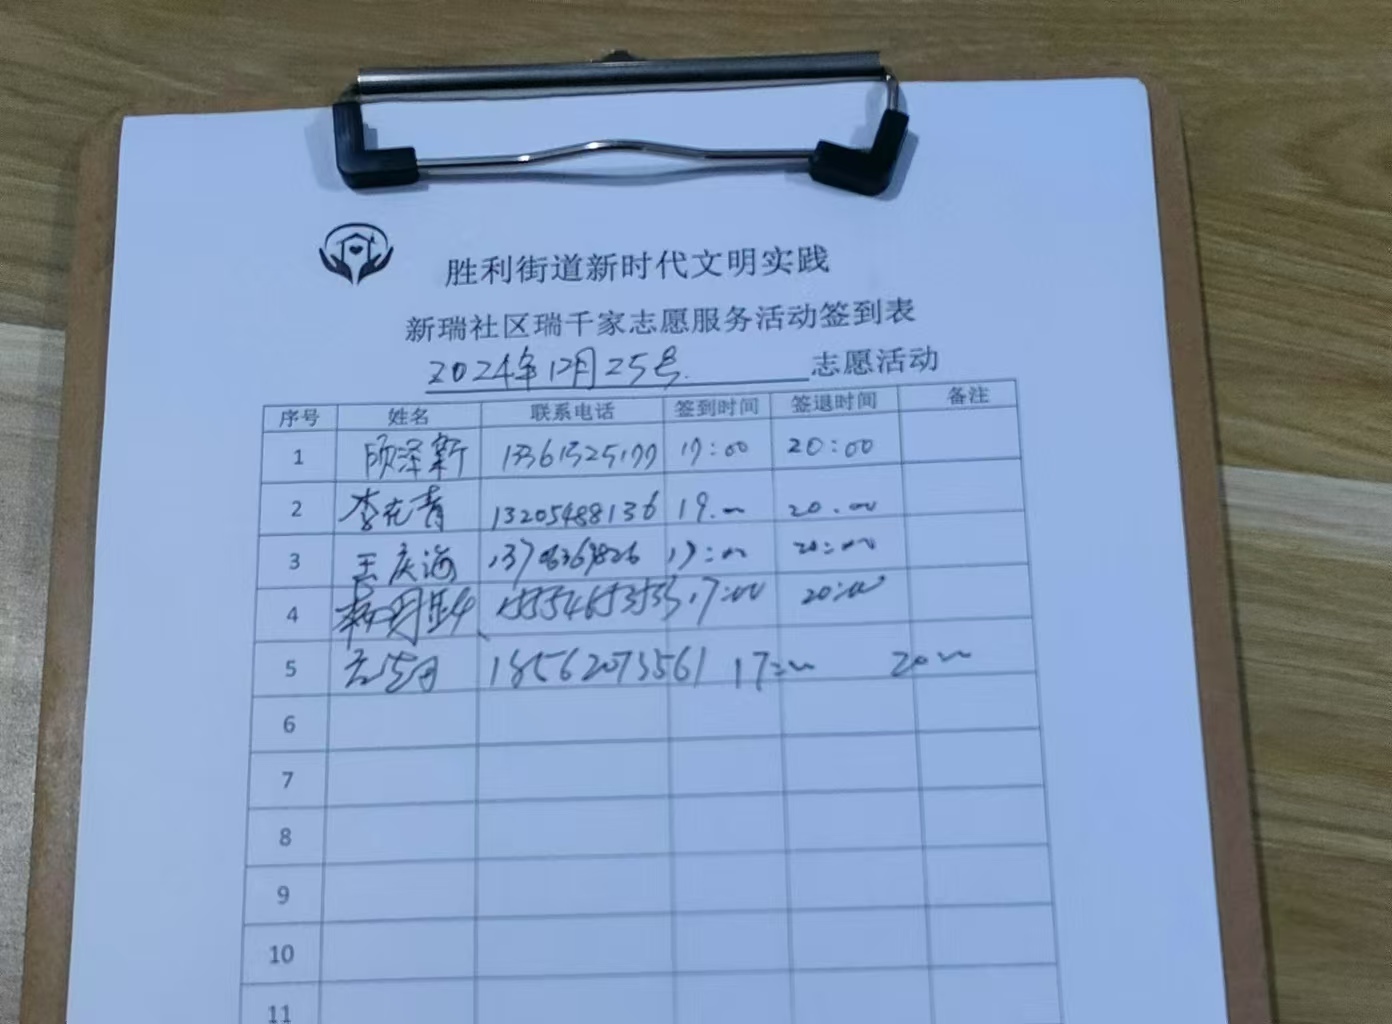 胜利街道新时代文明实践
新瑞社区瑞千家志愿服务活动签到表
2024年12月25号 志愿活动
序号 姓名 联系电话 签到时间 签退时间 备注
1 泽新 17:00 20:00
2 李 青 13205488136 19:00 20:00
3 王庆海 17:00 20:00
4 17:00 20:00
5 18562073561 17:00 20:00
6
7
8
9
10
11